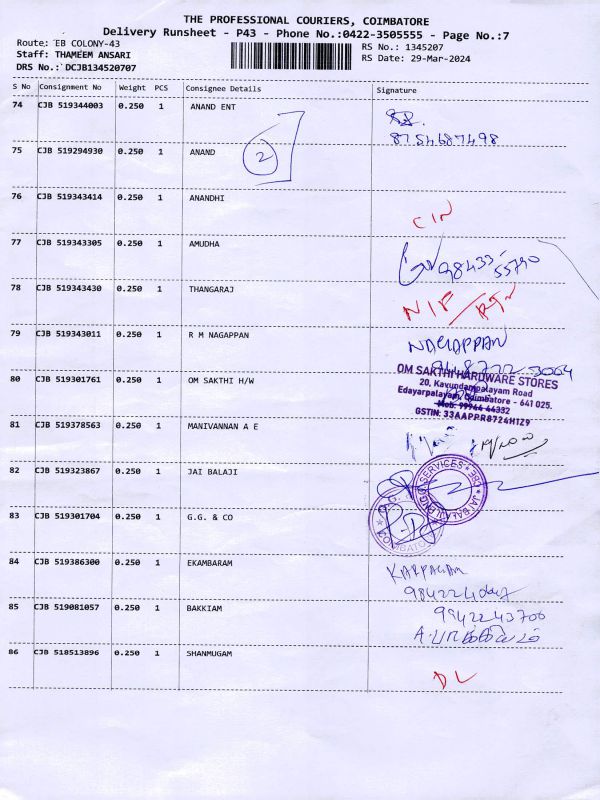 THE PROFESSIONAL COURIERS, COIMBATORE
Delivery Runsheet - P43 - Phone No.:0422-3505555 - Page No.:7
Route: EB COLONY-43
RS No.: 1345207
Staff: THAMEEM ANSARI
RS Date: 29-Mar-2024
DRS No.: DCJB134520707
S No Consignment No Weight PCS Consignee Details Signature
74 CJB 519344003 0.250 1 ANAND ENT
8754687498
75 CJB 519294930 0.250 1 ANAND
2
76 CJB 519343414 0.250 1 ANANDHI
CIN
77 CJB 519343305 0.250 1 AMUDHA
98433
55790
78 CJB 519343430 0.250 1 THANGARAJ
NIF/RTN
79 CJB 519343011 0.250 1 R M NAGAPPAN
NAGAPPAN
80 CJB 519301761 0.250 1 OM SAKTHI H/W
OM SAKTHI HARDWARE STORES
20, Kavundampalayam Road
Edayarpalayam, Coimbatore - 641 025.
Mob: 99944 44332
GSTIN: 33AAPPR8724H1Z9
81 CJB 519378563 0.250 1 MANIVANNAN A E
82 CJB 519323867 0.250 1 JAI BALAJI
83 CJB 519301704 0.250 1 G.G. & CO
84 CJB 519386300 0.250 1 EKAMBARAM
KARPAGAM
85 CJB 519081057 0.250 1 BAKKIAM
9942243700
86 CJB 518513896 0.250 1 SHANMUGAM
DL